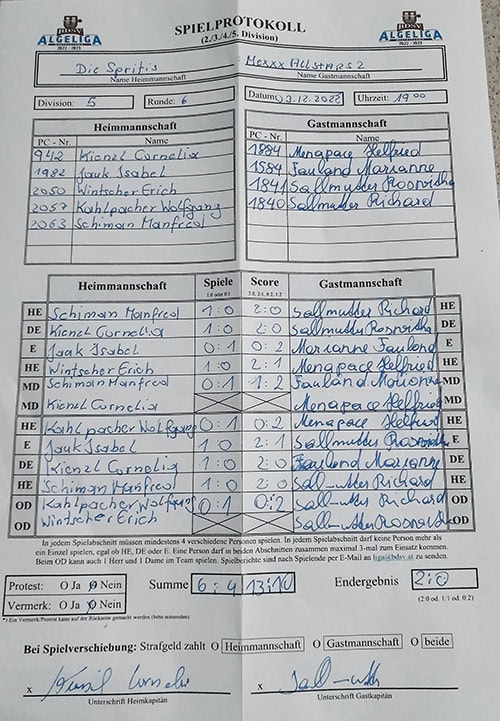 BDSV ALGELIGA 2022 - 2023
SPIELPROTOKOLL
(2./3./4./5. Division)
BDSV ALGELIGA 2022 - 2023
Die Spritis Mexxx Allstars 2
Name Heimmannschaft Name Gastmannschaft
Division: 5 Runde: 6 Datum 03.12.2022 Uhrzeit: 19 00
Heimmannschaft Gastmannschaft
PC - Nr. Name PC - Nr. Name
942 Kienzl Cornelia 1884 Menapace Helfried
1982 Jauk Isabel 1584 Fauland Marianne
2050 Wintscher Erich 1841 Sallmutter Roswitha
2057 Kahlpacher Wolfgang 1840 Sallmutter Richard
2063 Schiman Manfred
Heimmannschaft Spiele 1:0 oder 0:1 Score 2:0, 2:1, 0:2, 1:2 Gastmannschaft
HE Schiman Manfred 1:0 2:0 Sallmutter Richard HE
DE Kienzl Cornelia 1:0 2:0 Sallmutter Roswitha DE
E Jauk Isabel 0:1 0:2 Marianne Fauland E
HE Wintscher Erich 1:0 2:1 Menapace Helfried HE
MD Schiman Manfred 0:1 1:2 Fauland Marianne MD
MD Kienzl Cornelia Menapace Helfried MD
HE Kahlpacher Wolfgang 0:1 0:2 Menapace Helfried HE
E Jauk Isabel 1:0 2:1 Sallmutter Roswitha E
DE Kienzl Cornelia 1:0 2:0 Fauland Marianne DE
HE Schiman Manfred 1:0 2:0 Sallmutter Richard HE
OD Kahlpacher Wolfgang 0:1 0:2 Sallmutter Richard OD
OD Wintscher Erich Sallmutter Roswitha OD
In jedem Spielabschnitt müssen mindestens 4 verschiedene Personen spielen. In jedem Spielabschnitt darf keine Person mehr als
ein Einzel spielen, egal ob HE, DE oder E. Eine Person darf in beiden Abschnitten zusammen maximal 3-mal zum Einsatz kommen.
Beim OD kann auch 1 Herr und 1 Dame im Team spielen. Spielberichte sind nach Spielende per E-Mail an liga@bdsv.at zu senden.
Protest: O Ja O Nein Summe 6:4 13:10 Endergebnis 2:0
Vermerk: O Ja O Nein (2:0 od. 1:1 oder. 0:2)
*) Ein Vermerk/Protest kann auf der Rückseite gemacht werden (bitte mitsenden)
Bei Spielverschiebung: Strafgeld zahlt O Heimmannschaft O Gastmannschaft O beide
x Kienzl Cornelia x Sallmutter
Unterschrift Heimkapitän Unterschrift Gastkapitän